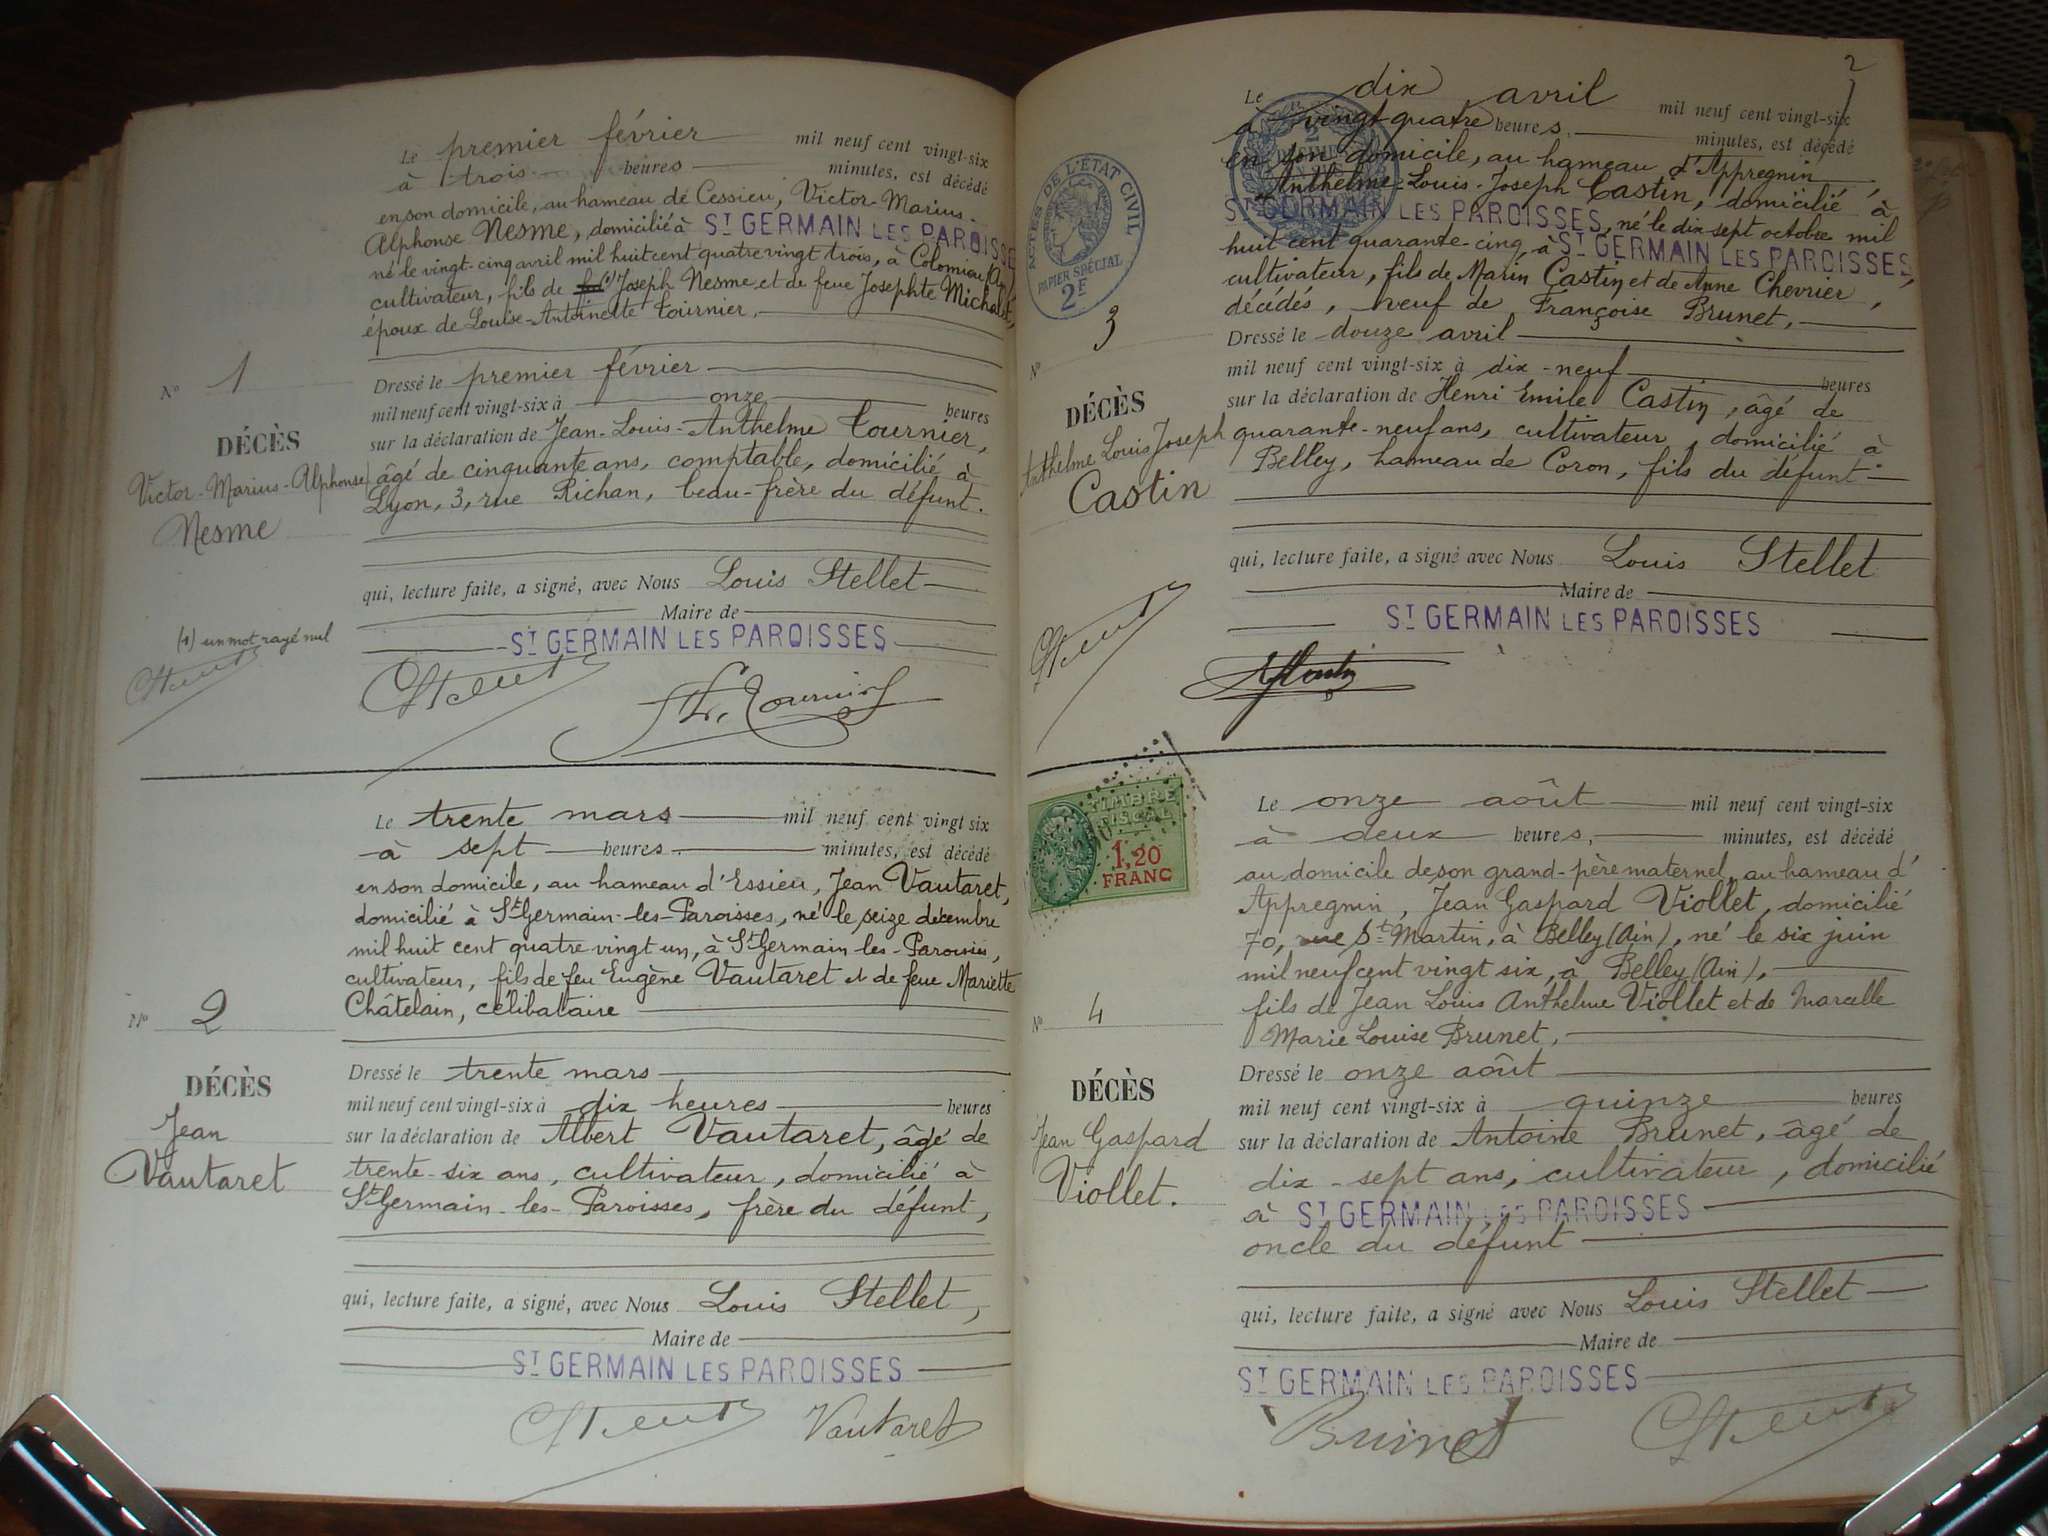 Le premier février mil neuf cent vingt-six
à trois heures minutes, est décédé
en son domicile, au hameau de Cessieu, Victor-Marius-
Alphonse Nesme, domicilié à ST GERMAIN LES PAROISSE
né le vingt-cinq avril mil huit cent quatre vingt trois, à Colomieu (Ain)
cultivateur, fils de (1) Joseph Nesme et de feue Josephte Michalet,
époux de Louise-Antoinette Tournier,
N° 1
Dressé le premier février
mil neuf cent vingt-six à onze heures
DÉCÈS
sur la déclaration de Jean-Louis-Anthelme Tournier,
Victor-Marius-Alphonse
âgé de cinquante ans, comptable, domicilié à
Nesme
Lyon, 3, rue Richan, beau-frère du défunt.
qui, lecture faite, a signé, avec Nous Louis Stellet
Maire de
(1) un mot rayé nul
ST GERMAIN LES PAROISSES
Le trente mars mil neuf cent vingt six
à sept heures minutes, est décédé
en son domicile, au hameau d'Essieu, Jean Vautaret,
domicilié à St Germain-les-Paroisses, né le seize décembre
mil huit cent quatre vingt un, à St Germain-les-Paroisses,
cultivateur, fils de feu Eugène Vautaret et de feue Mariette
Châtelain, célibataire
N° 2
DÉCÈS
Dressé le trente mars
mil neuf cent vingt-six à dix heures heures
Jean
sur la déclaration de Albert Vautaret, âgé de
Vautaret
trente-six ans, cultivateur, domicilié à
St Germain-les-Paroisses, frère du défunt,
qui, lecture faite, a signé, avec Nous Louis Stellet,
Maire de
ST GERMAIN LES PAROISSES
Vautaret
2
Le dix avril mil neuf cent vingt-six
à vingt quatre heures minutes, est décédé
en son domicile, au hameau d'Appregnin
Anthelme-Louis-Joseph Castin, domicilié à
ST GERMAIN LES PAROISSES, né le dix-sept octobre mil
huit cent quarante-cinq à ST GERMAIN LES PAROISSES,
cultivateur, fils de Marin Castin et de Anne Chevrier,
décédés, veuf de Françoise Brunet,
ACTES DE L'ÉTAT CIVIL
PAPIER SPÉCIAL
2F
N° 3
Dressé le douze avril
mil neuf cent vingt-six à dix-neuf heures
DÉCÈS
sur la déclaration de Henri Emile Castin, âgé de
Anthelme Louis Joseph
quarante-neuf ans, cultivateur, domicilié à
Castin
Belley, hameau de Coron, fils du défunt
qui, lecture faite, a signé avec Nous Louis Stellet
Maire de
ST GERMAIN LES PAROISSES
TIMBRE
FISCAL
1,20
FRANC
Le onze août mil neuf cent vingt-six
à deux heures, minutes, est décédé
au domicile de son grand-père maternel, au hameau d'
Appregnin, Jean Gaspard Viollet, domicilié
70, rue St Martin, à Belley (Ain), né le six juin
mil neuf cent vingt six, à Belley (Ain),
fils de Jean Louis Anthelme Viollet et de Marcelle
Marie Louise Brunet,
N° 4
DÉCÈS
Dressé le onze août
mil neuf cent vingt-six à quinze heures
Jean Gaspard
sur la déclaration de Antoine Brunet, âgé de
Viollet.
dix-sept ans, cultivateur, domicilié
à ST GERMAIN LES PAROISSES
oncle du défunt
qui, lecture faite, a signé avec Nous Louis Stellet
Maire de
ST GERMAIN LES PAROISSES
Brunet